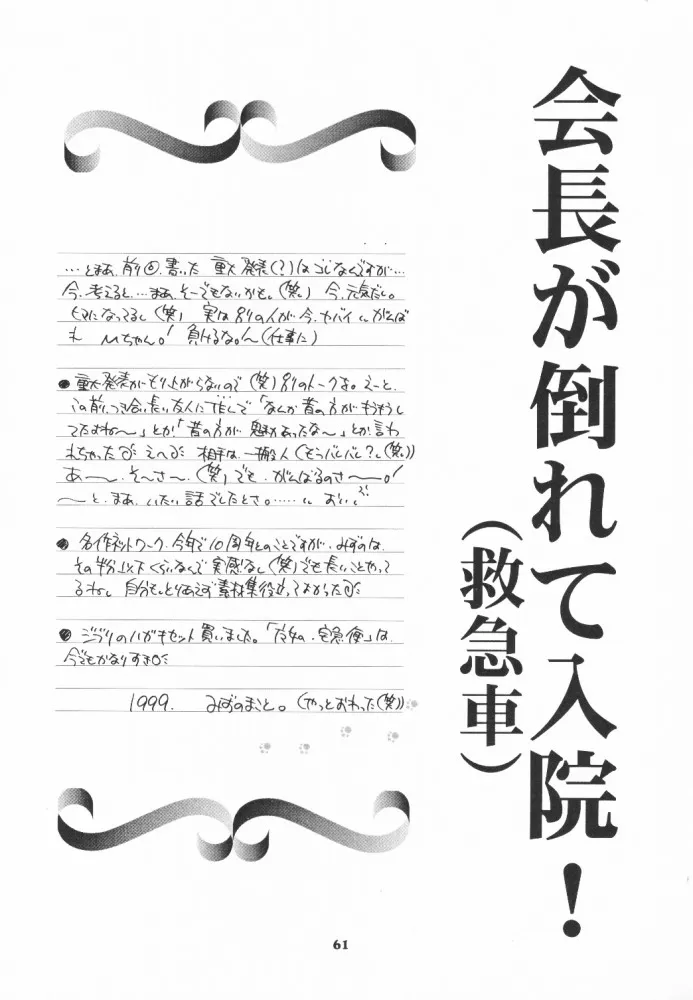 会長が倒れて入院!
(救急車)
…とまあ、前回、書いた 重大発表(?)はコレなんですが…
今、考えると…まあ、そーでもないかも。(笑) 今、元気だし。
ヒマになってるし(笑) 実は別の人が今、ヤバイ がんば
れ Mちゃん。! 負けるな。!〜(仕事に)
●重大発表がもり上がらないので(笑)別のトークを。えーと、
この前、つき合い長い友人に 「なんか昔の方がもうもうし
てたよね〜」とか「昔の方が魅力あったな〜」とか言わ
れちゃった えへ 相手は一般人(もうバレバレ?(笑))
あ〜、そ〜さ〜、(笑)でも、がんばるのさ〜。!
〜と、まあ、いたい話でしたとさ。…… おい。
●名作ネットワーク、今年で10周年とのことですが、みずのは、
その半分以下くらいなんで実感なし(笑)でも長いことやって
るねし、自分も、とりあえず素材集役立ってよかった
●ジブリのハガキセット買いました。「魔女の宅急便」は、
今でもかなりすき
1999. みずのまこと。(やっとおわった(笑))
61